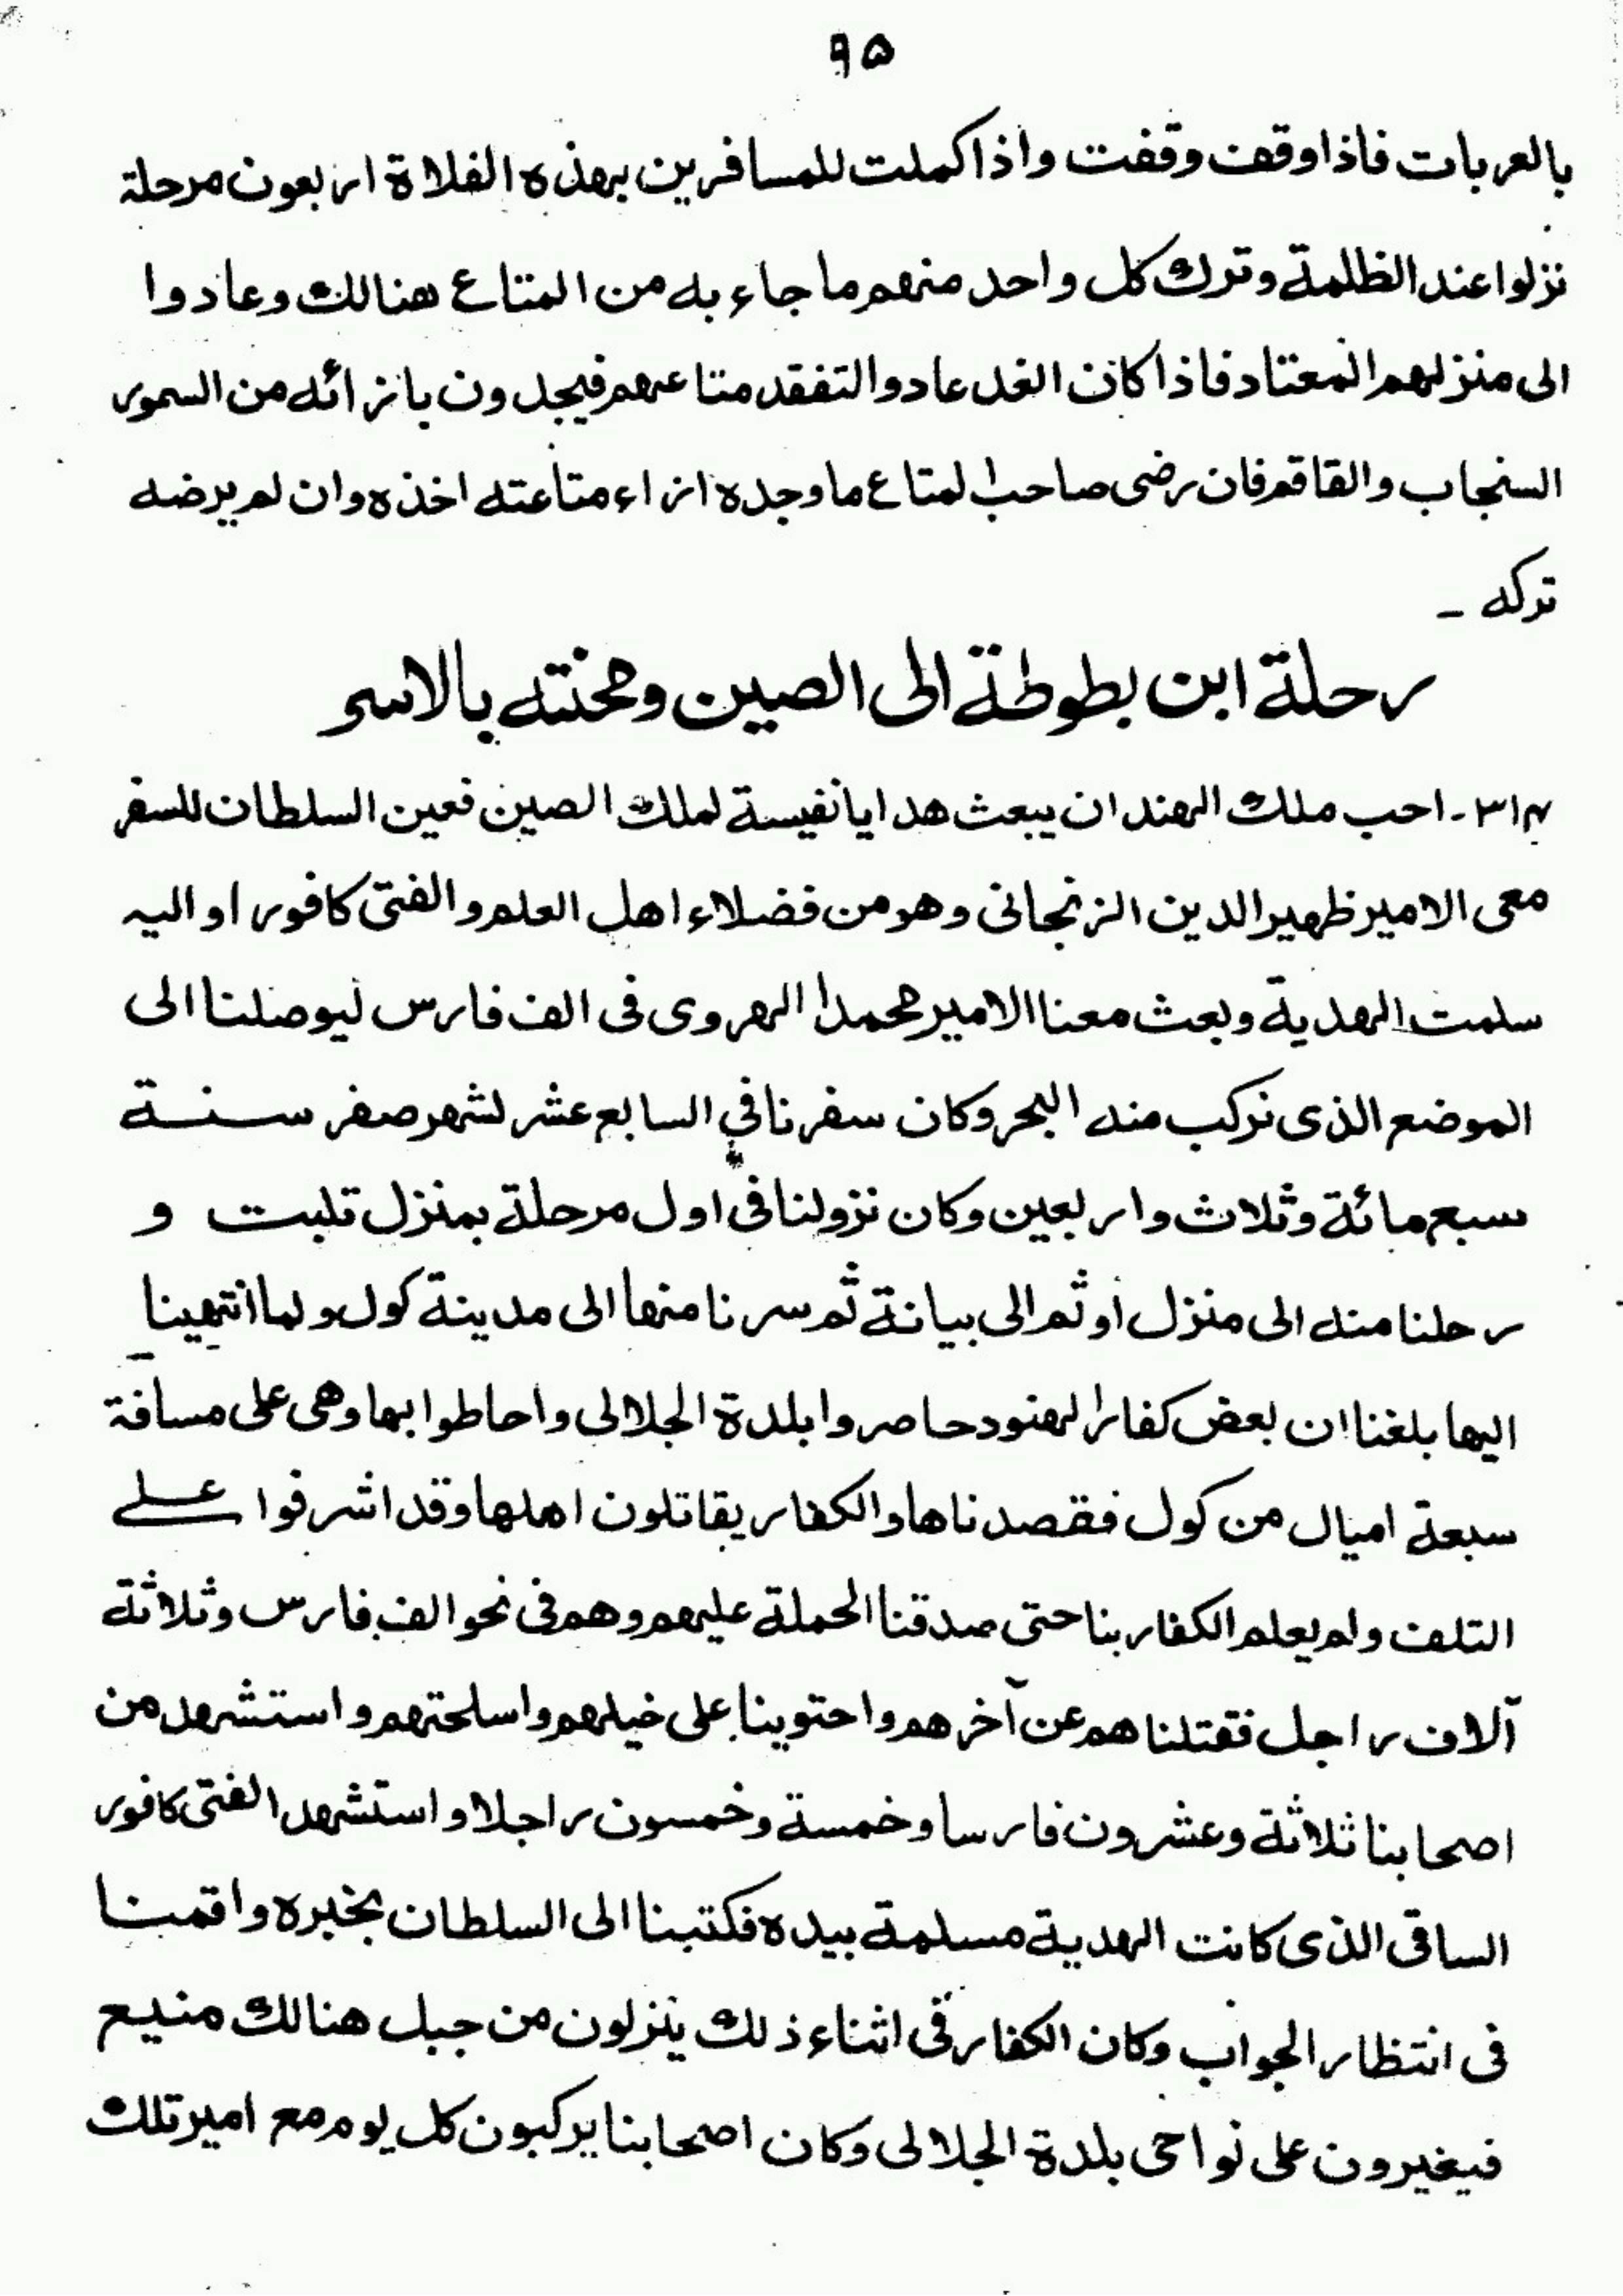 ٩٥
بالعربات فاذا وقف وقفت واذا كملت للمسافرين بهذه الفلاة اربعون مرحلة
نزلوا عند الظلمة وترك كل واحد منهم ما جاء به من المتاع هنالك وعادوا
الى منزلهم المعتاد فاذا كان الغد عادوا لتفقد متاعهم فيجدون بازائه من السمور
السنجاب والقاقم فان رضى صاحب المتاع ما وجده ازاء متاعته اخذه وان لم يرضه
تركه ـ
رحلة ابن بطوطة الى الصين ومحنته بالاسر
٣١٤ـ احب ملك الهند ان يبعث هدايا نفيسة لملك الصين فعين السلطان للسفر
معى الامير ظهير الدين الزنجانى وهو من فضلاء اهل العلم والفتى كافور او اليه
سلمت الهدية وبعث معنا الامير محمدا الهروى فى الف فارس ليوصلنا الى
الموضع الذى نركب منه البحر وكان سفرنا في السابع عشر لشهر صفر سنة
سبع مائة وثلاث واربعين وكان نزولنا فى اول مرحلة بمنزل تلبت و
رحلنا منه الى منزل أو ثم الى بيانة ثم سرنا منها الى مدينة كول ولما انتهينا
اليها بلغنا ان بعض كفار الهنود حاصروا بلدة الجلالى واحاطوا بها وهى على مسافة
سبعة اميال من كول فقصدناها والكفار يقاتلون اهلها وقد اشرفوا على
التلف ولم يعلم الكفار بنا حتى صدقنا الحملة عليهم وهم فى نحو الف فارس وثلاثة
آلاف راجل فقتلناهم عن آخرهم واحتوينا على خيلهم واسلحتهم واستشهد من
اصحابنا ثلاثة وعشرون فارسا وخمسة وخمسون راجلا واستشهد الفتى كافور
الساقى الذى كانت الهدية مسلمة بيده فكتبنا الى السلطان بخبره واقمنا
فى انتظار الجواب وكان الكفار فى اثناء ذلك ينزلون من جبل هنالك منيع
فيغيرون على نواحى بلدة الجلالى وكان اصحابنا يركبون كل يوم مع امير تلك